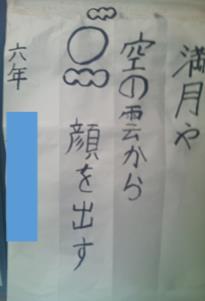 満月や
空の雲から
顔を出す
六年